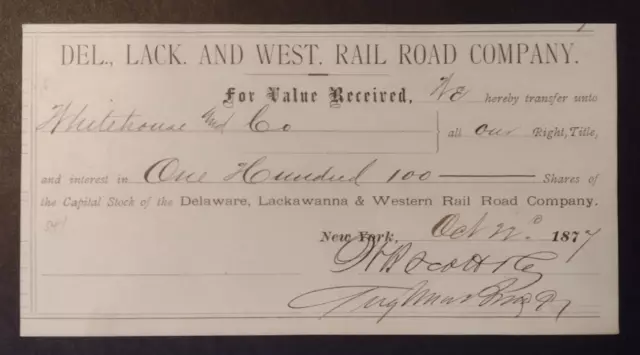 DEL., LACK. AND WEST. RAIL ROAD COMPANY.
For Value Received, We hereby transfer unto
Whitehouse and Co all our Right, Title,
and interest in One Hundred 100 Shares of
the Capital Stock of the Delaware, Lackawanna & Western Rail Road Company.
New York, Oct 22d 1877
W B Scott & Co